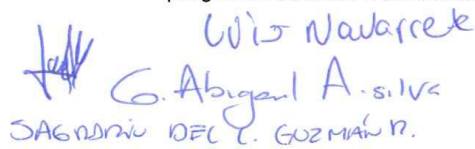 Luis Navarrete
G. Abigail A. silva
SAGRARIO DEL C. GUZMÁN R.